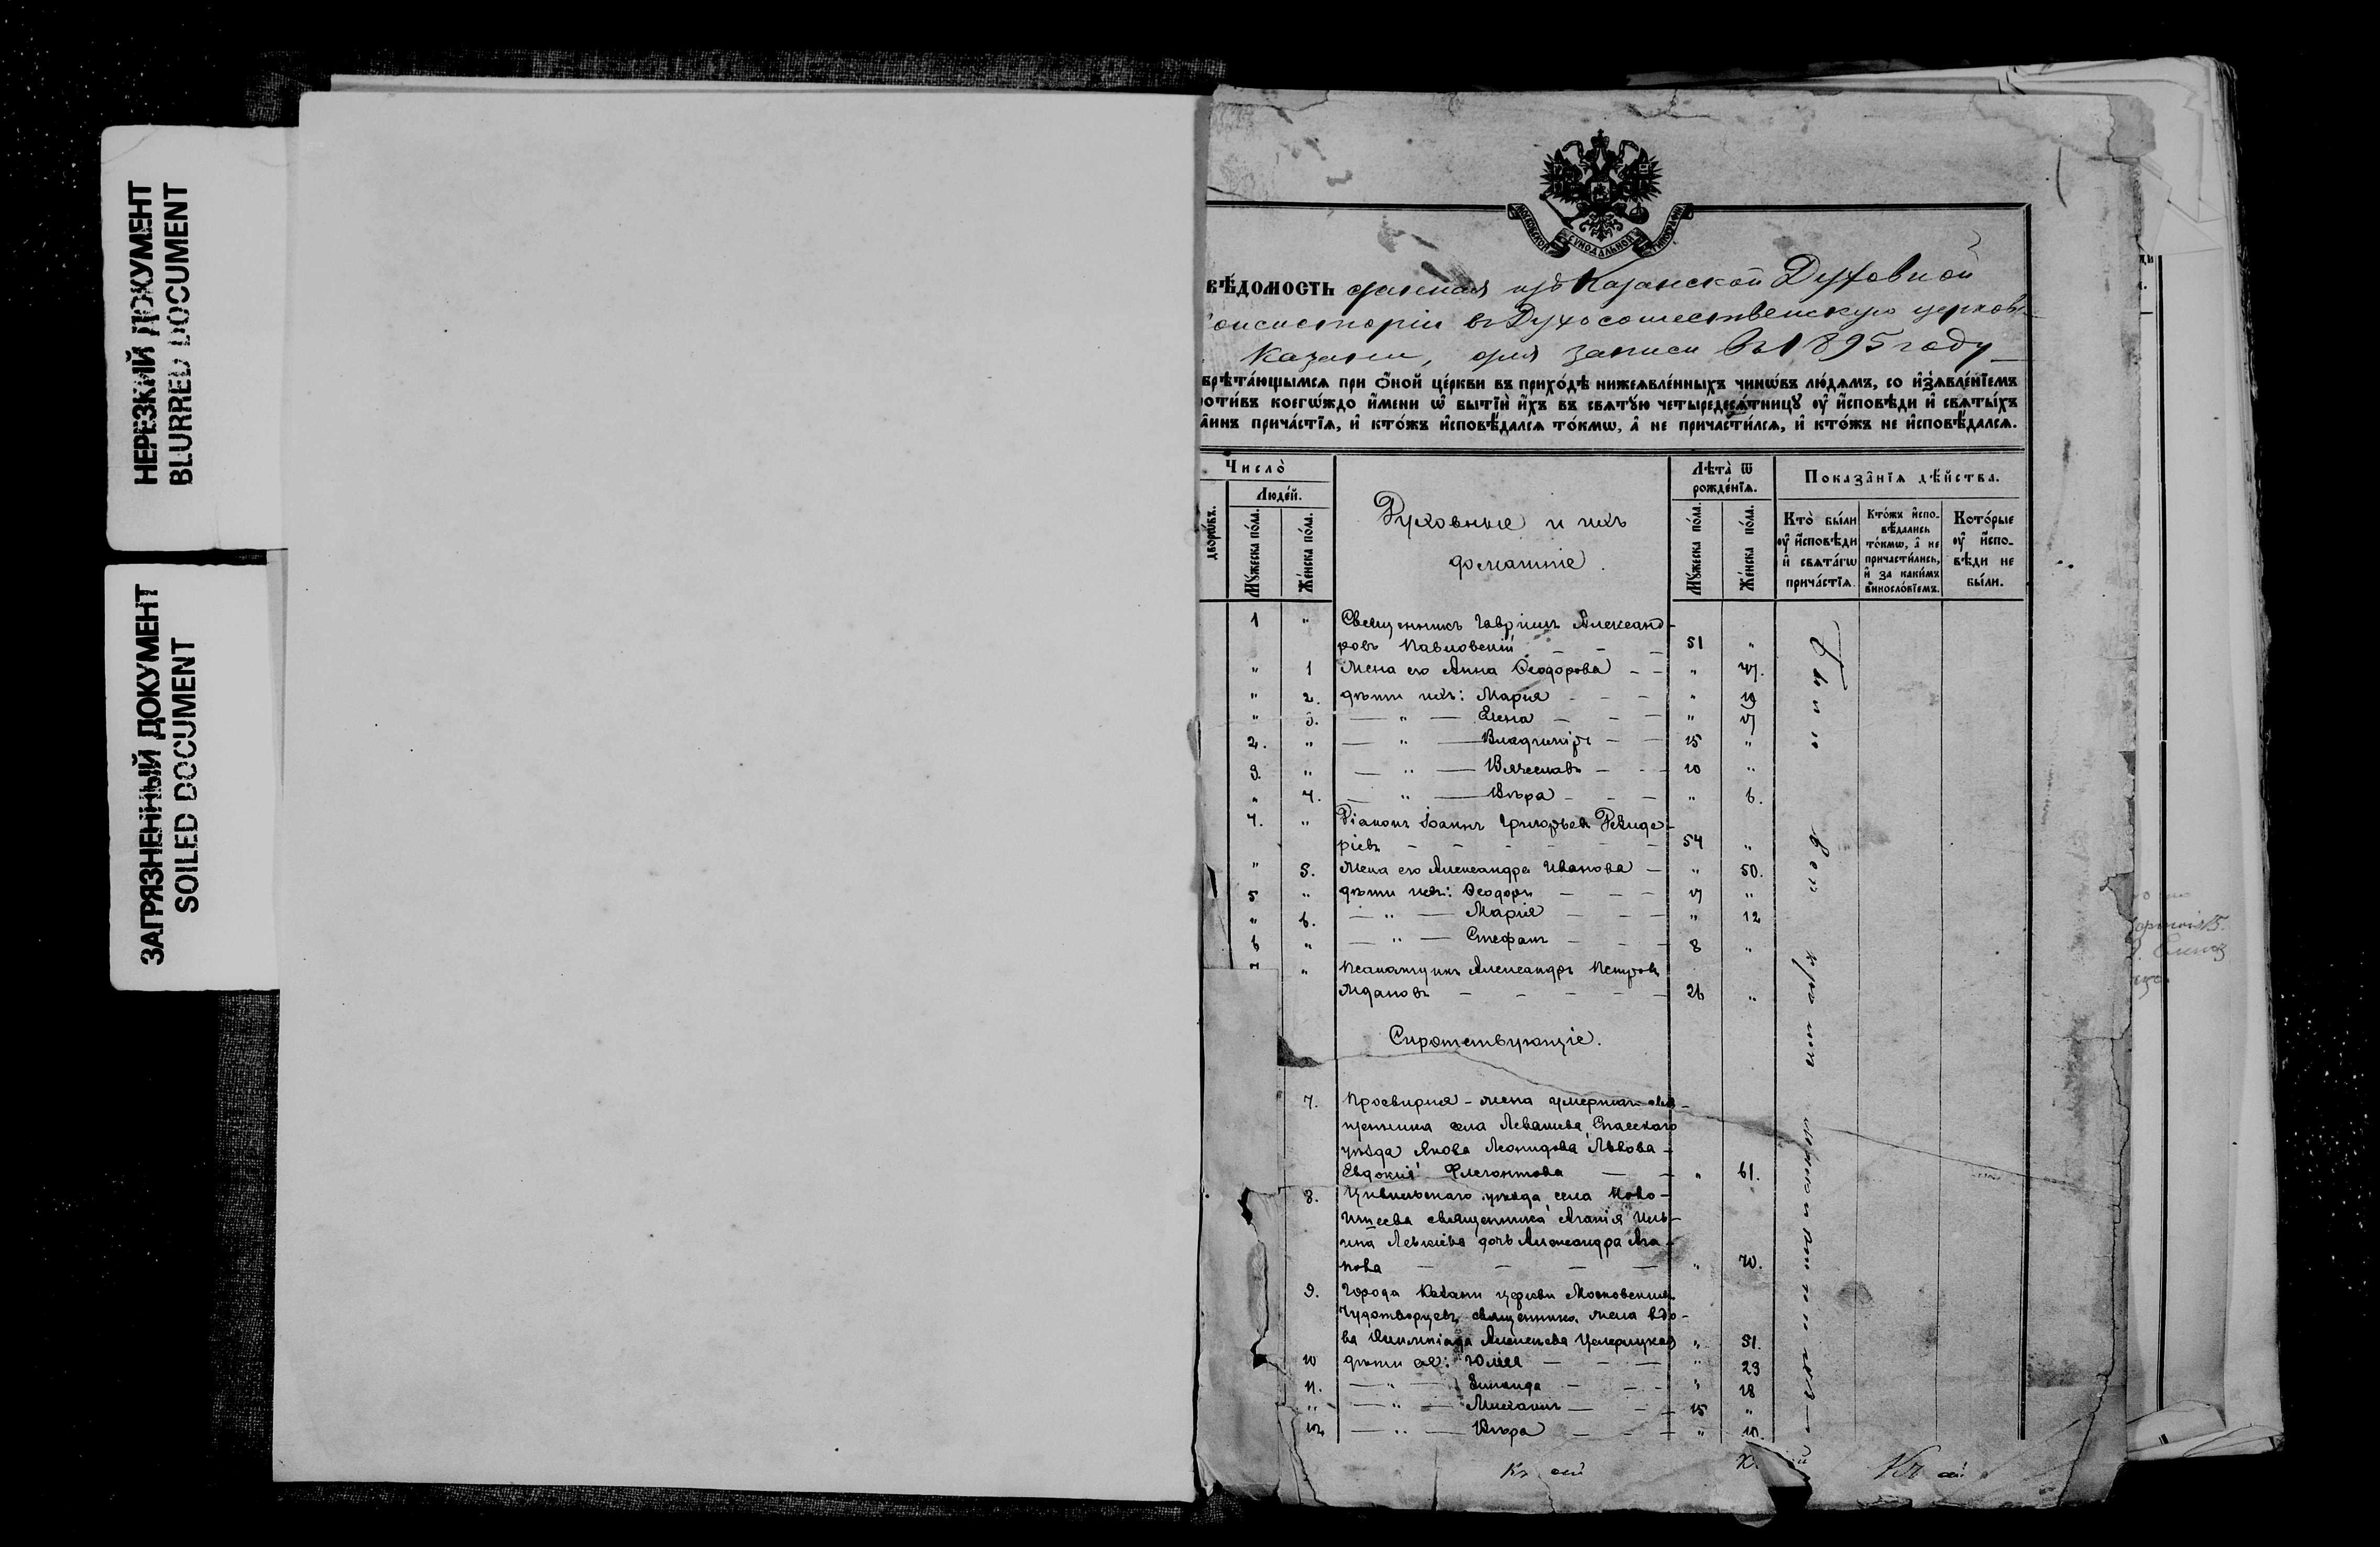 НЕРЕЗКИЙ ДОКУМЕНТ
BLURRED DOCUMENT
ЗАГРЯЗНЕННЫЙ ДОКУМЕНТ
SOILED DOCUMENT
МОСКОВСКОЙ СѴНОДАЛЬНОЙ ТИПОГРАФІИ
вѣ́домость данная изъ Казанской Духовной
онсисторіи въ Духосошественскую церковь
Казани, для записи въ 1895 году
брѣта́ющымся при ѻ҆́ной це́ркви въ прихо́дѣ нижеѧвле́нныхъ чинѡ́въ лю́дямъ, со и҆з̾ѧвле́нїемъ
оти́въ коегѡ́ждо и҆́мени ѡ҆ бытїѝ и҆́хъ въ свѧту́ю четыредесѧ́тницу ѹ҆ и҆сповѣ́ди и҆ свѧты́хъ
а̑инъ прича́стїѧ, и҆ кто́жъ и҆сповѣ́дался то́кмѡ, а҆ не причасти́лся, и҆ кто́жъ не и҆сповѣ́дался.
Число̀
Люде́й.
дворѡ́въ.
Му́жеска по́ла.
Же́нска по́ла.
Духовные и ихъ
домашніе.
Лѣта̀ ѿ рожде́нїѧ.
Му́жеска по́ла.
Же́нска по́ла.
Показа̑нїѧ дѣ́йства.
Кто̀ бы́ли ѹ҆ и҆сповѣ́ди и҆ свѧта́гѡ прича́стїѧ.
Кто́жъ и҆спо-вѣ́дались то́кмѡ, а҆ не причасти́лись, и҆ за каки́мъ виносло́вїемъ.
Кото́рые ѹ҆ и҆спо-вѣ́ди не бы́ли.
1 " Священникъ Гавріилъ Александ-
ровъ Павловскій 51 "
" 1 Жена его Анна Ѳеодорова "
" 2. дѣти ихъ: Марія " 19
" 3. " Елена " 17
2. " " Владиміръ 15 "
3. " " Вячеславъ 10 "
" 4. " Вѣра " 6.
4. " Діаконъ Іоаннъ Григорьевъ Дезиде-
ріевъ 54 "
" 5. Жена его Александра Иванова " 50.
5 " дѣти ихъ: Ѳеодоръ 17 "
" 6. " Марія " 12
6 " " Стефанъ 8 "
7 " Псаломщикъ Александръ Петровъ
Ждановъ 26 "
Сиротствующіе.
7. Просвирня - жена умершаго свя-
щенника села Левашева, Спасскаго
уѣзда Якова Леонидова Львова -
Евдокія Флегонтова " 61.
8. Цивильскаго уѣзда села Ново-
священника Агапія Иль-
ина дочь Александра Ага-
пова " 70.
9. Города Казани церкви Московскихъ
Чудотворцевъ священника жена вдо-
ва Олимпіада Алексѣева " 51.
10 дѣти ея: Юлія " 23
11. " Зинаида " 18
" " Михаилъ 15 "
12. " Вѣра " 10.
Были всѣ